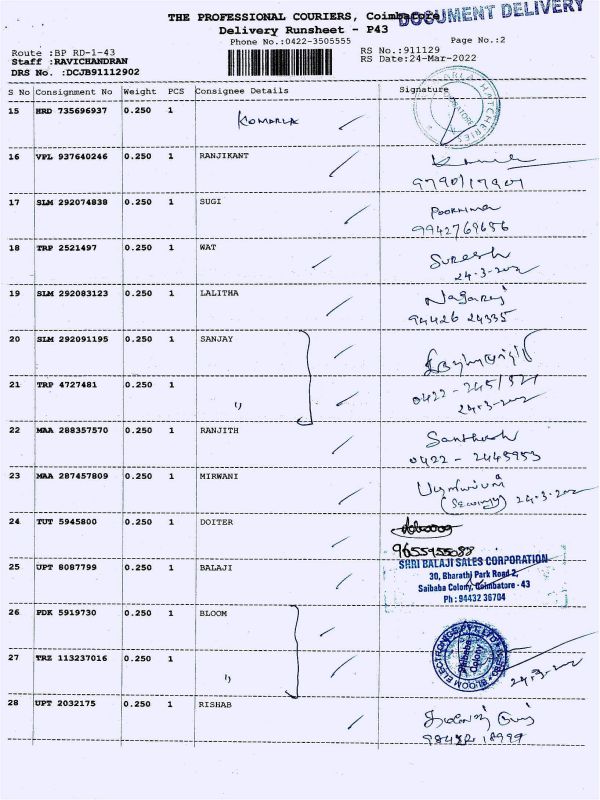 THE PROFESSIONAL COURIERS, Coimbatore
DOCUMENT DELIVERY
Delivery Runsheet - P43
Phone No.:0422-3505555
Page No.:2
Route :BP RD-1-43
RS No.:911129
Staff :RAVICHANDRAN
RS Date:24-Mar-2022
DRS No. :DCJB91112902
S No Consignment No Weight PCS Consignee Details Signature
15 HRD 735696937 0.250 1 KOMARLA
HATCHERIES
COIMBATORE
16 VPL 937640246 0.250 1 RANJIKANT
17 SLM 292074838 0.250 1 SUGI POORNIMA
9942769656
18 TRP 2521497 0.250 1 WAT Suresh
24-3-202
19 SLM 292083123 0.250 1 LALITHA Nagaraj
94426 24335
20 SLM 292091195 0.250 1 SANJAY
21 TRP 4727481 0.250 1 "
24-3-202
22 MAA 288357570 0.250 1 RANJITH Santhosh
0422 - 2445953
23 MAA 287457809 0.250 1 MIRWANI
24-3-202
24 TUT 5945800 0.250 1 DOITER
9655955088
25 UPT 8087799 0.250 1 BALAJI SHRI BALAJI SALES CORPORATION
30, Bharathi Park Road 2,
Saibaba Colony, Coimbatore - 43
Ph : 94432 36704
26 PDK 5919730 0.250 1 BLOOM
BLOOM ELECTRONICS PVT LTD
Saibaba
Colony
27 TRZ 113237016 0.250 1 "
24-3-202
28 UPT 2032175 0.250 1 RISHAB